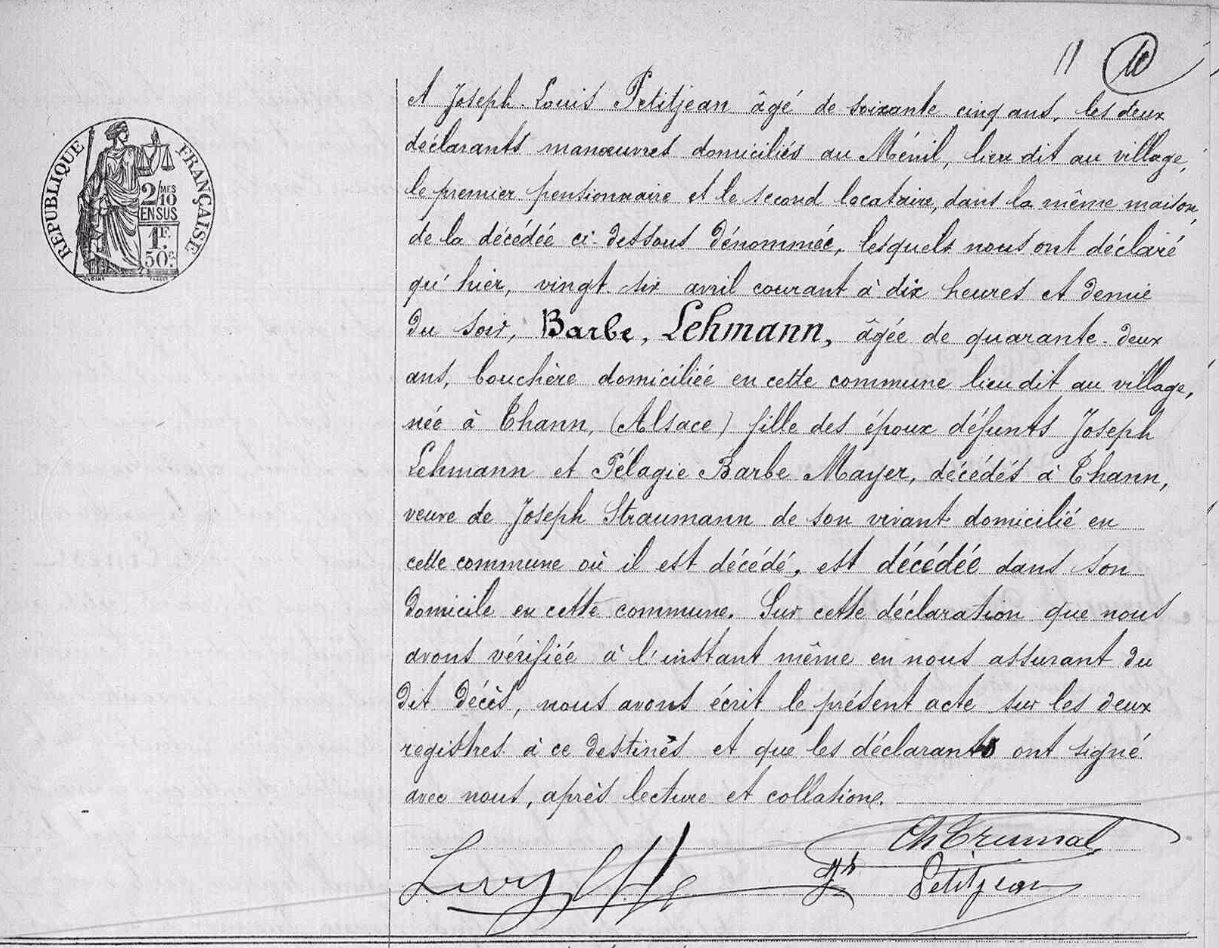 11 10
RÉPUBLIQUE FRANÇAISE
2/10 MES
EN SUS
1F.
50c.
et Joseph Louis Petitjean âgé de soixante cinq ans, les deux
déclarants manœuvres domiciliés au Ménil, lieu dit au village,
le premier pensionnaire et le second locataire, dans la même maison
de la décédée ci-dessous dénommée, lesquels nous ont déclaré
qu'hier, vingt-six avril courant à dix heures et demie
du soir, Barbe, Lehmann, âgée de quarante-deux
ans, bouchère domiciliée en cette commune lieu dit au village,
née à Thann, (Alsace) fille des époux défunts Joseph
Lehmann et Pélagie Barbe Mayer, décédés à Thann,
veuve de Joseph Straumann de son vivant domicilié en
cette commune où il est décédé, est décédée dans son
domicile en cette commune. Sur cette déclaration que nous
avons vérifiée à l'instant même en nous assurant du
dit décès, nous avons écrit le présent acte sur les deux
registres à ce destinés et que les déclarants ont signé
avec nous, après lecture et collatione.
Petitjean